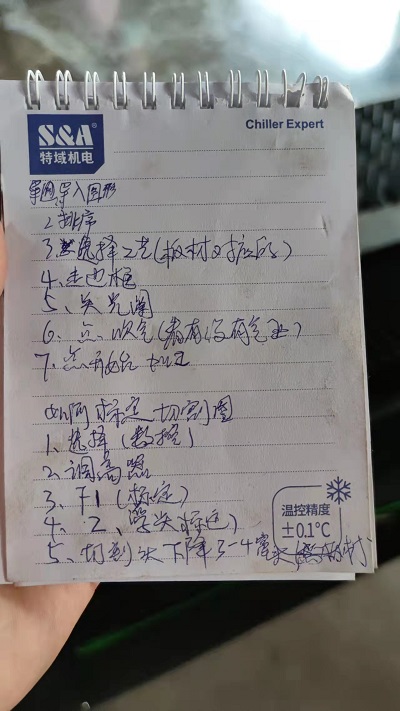 S&A®
特域机电
Chiller Expert
导入图形
2 排序
3. 选择工艺(板材对应的)
4. 走边框
5、关光闸
6. 点吹气(看有没有气压)
7. 点开始加工
如何标定切割图
1、选择(数控)
2、调高器
3、F1(标定)
4、2、浮头标定)
5、切割头下降3-4毫米
温控精度
±0.1℃